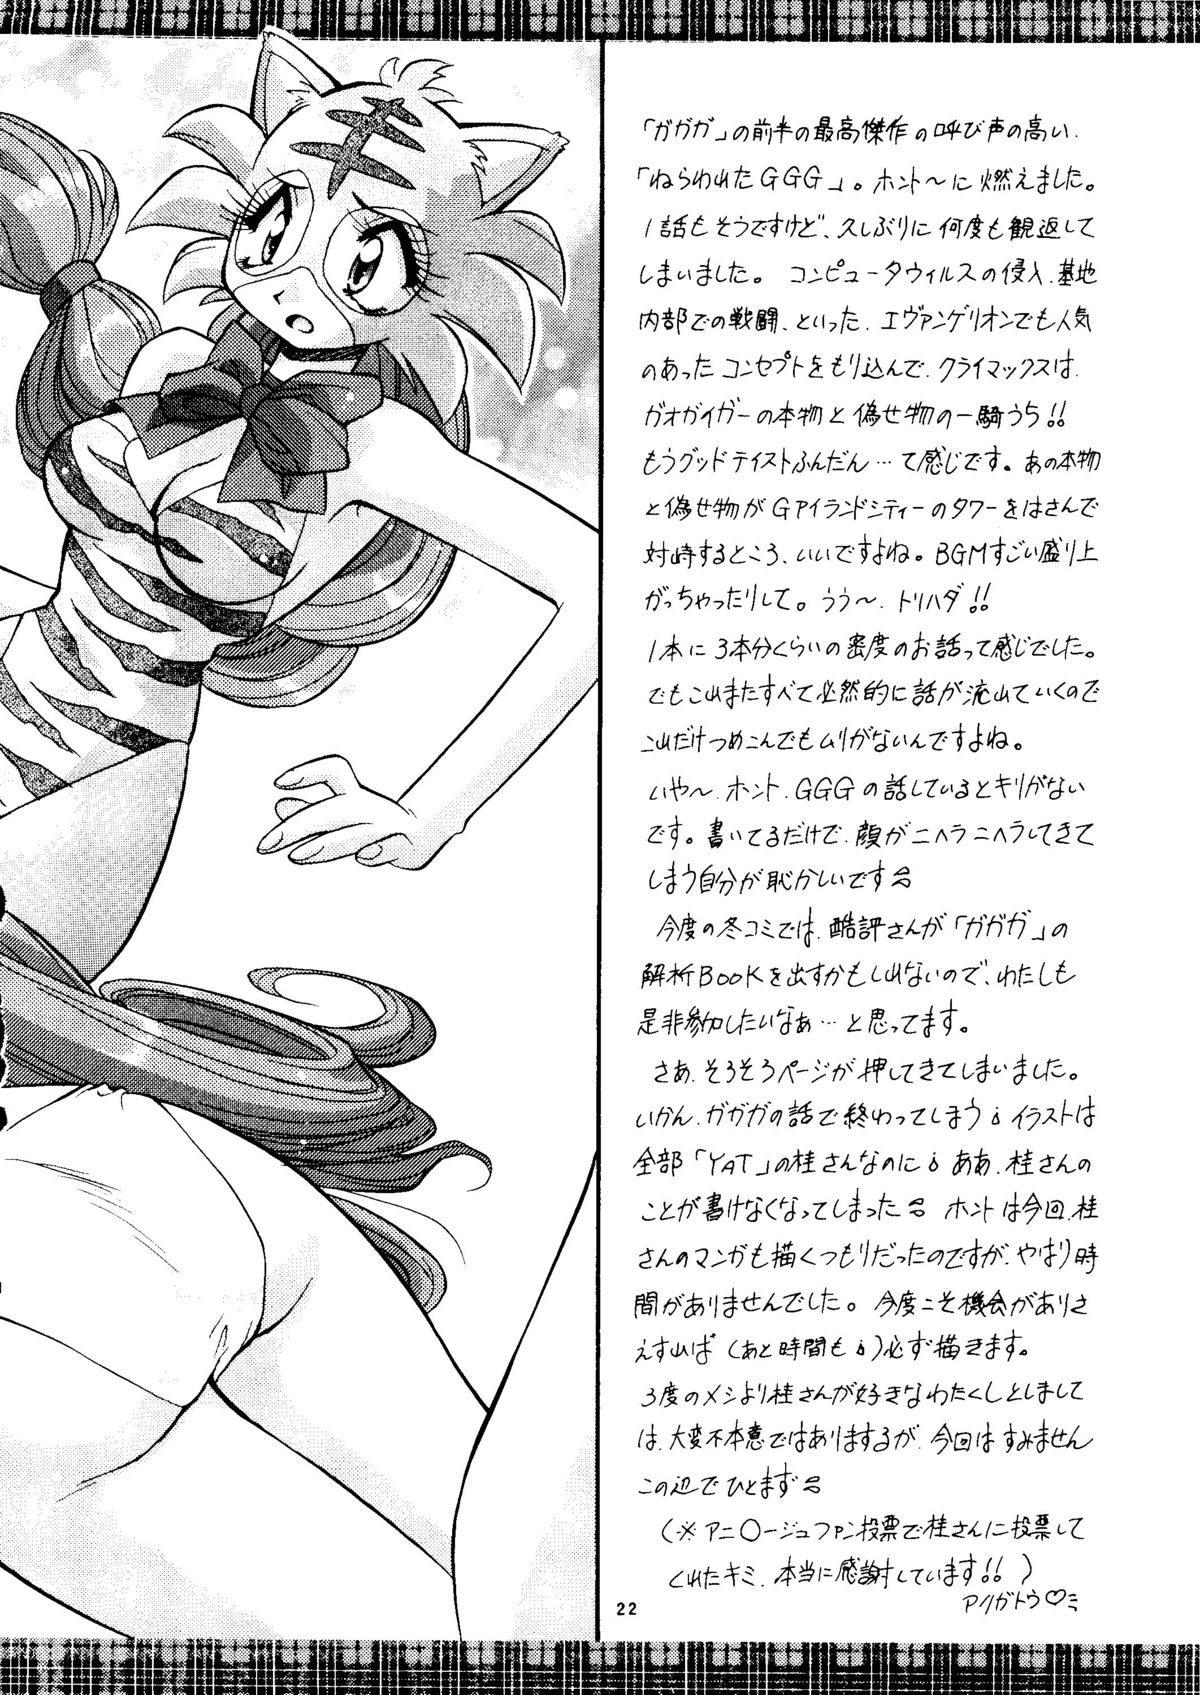 「ガガガ」の前半の最高傑作の呼び声の高い、
「ねらわれたGGG」。ホント〜に燃えました。
1話もそうですけど、久しぶりに何度も観返して
しまいました。コンピュータウィルスの侵入、基地
内部での戦闘、といった、エヴァンゲリオンでも人気
のあったコンセプトをもり込んで、クライマックスは、
ガオガイガーの本物と偽せ物の一騎うち!!
もうグッドテイストふんだん…て感じです。あの本物
と偽せ物がGPイランドシティーのタワーをはさんで
対峙するところ、いいですよね。BGMすごい盛り上
がっちゃったりして。うう〜、トリハダ!!
1本に3本分くらいの密度のお話って感じでした。
でもこれまたすべて必然的に話が流れていくので
これだけつめこんでもムリがないんですよね。
いや〜、ホント、GGGの話しているとキリがない
です。書いてるだけで、顔がニヘラニヘラしてきて
しまう自分が恥かしいです
今度の冬コミでは、酷評さんが「ガガガ」の
解析BOOKを出すかもしれないので、わたしも
是非参加したいなぁ…と思ってます。
さあ、そろそろページが押してきてしまいました。
いかん、ガガガの話で終わってしまう イラストは
全部「YAT」の桂さんなのに ああ、桂さんの
ことが書けなくなってしまった ホントは今回、桂
さんのマンガも描くつもりだったのですが、やはり時
間がありませんでした。今度こそ機会がありさ
えすれば(あと時間も)必ず描きます。
3度のメシより桂さんが好きなわたくしとしまして
は、大変不本意ではありまするが、今回はすみません
この辺でひとまず
(※アニ○ージュファン投票で桂さんに投票して
くれたキミ、本当に感謝しています!!)
アリガトウ♡
22